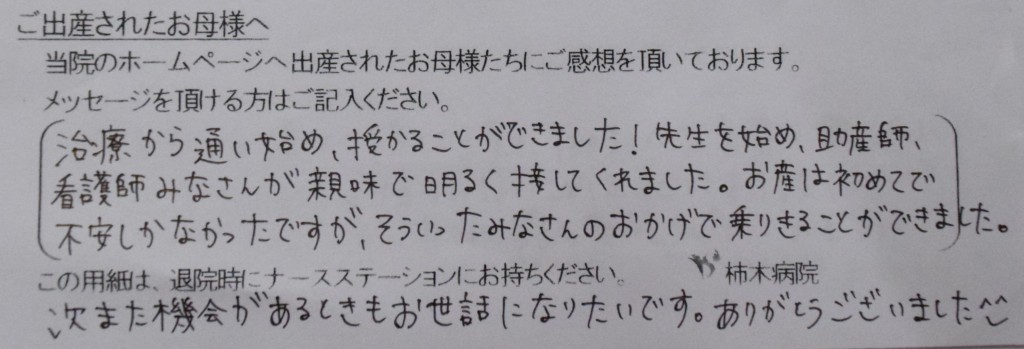 ご出産されたお母様へ
当院のホームページへ出産されたお母様たちにご感想を頂いております。
メッセージを頂ける方はご記入ください。
治療から通い始め、授かることができました！先生を始め、助産師、
看護師みなさんが親味で明るく接してくれました。お産は初めてで
不安しかなかったですが、そういったみなさんのおかげで乗りきることができました。
この用細は、退院時にナースステーションにお持ちください。 柿木病院
次また機会があるときもお世話になりたいです。ありがとうございました^^